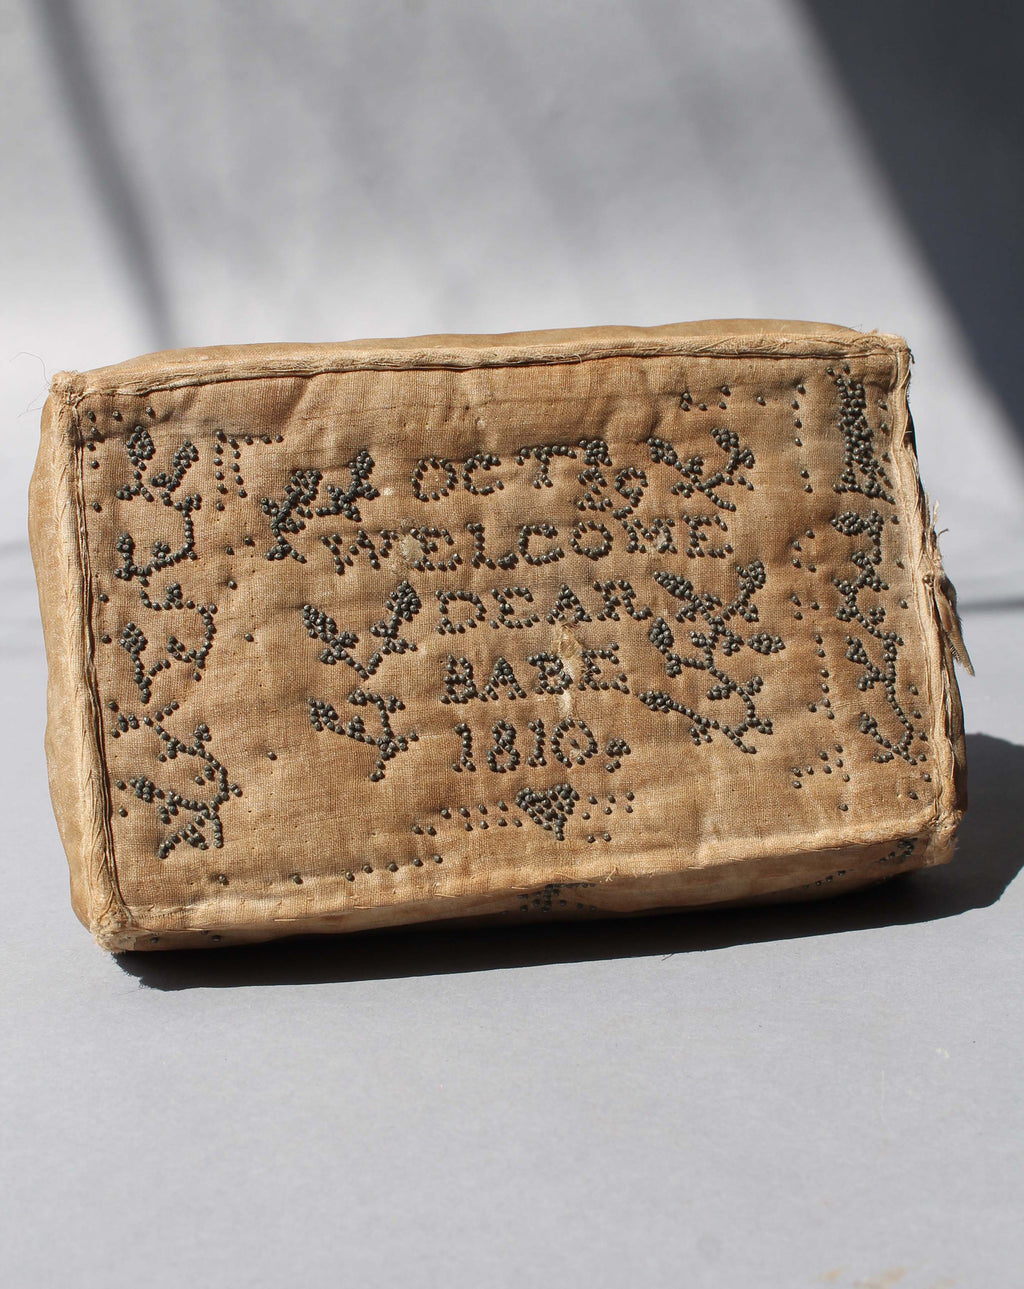 OCT 29
WELCOME
DEAR
BABE
1810